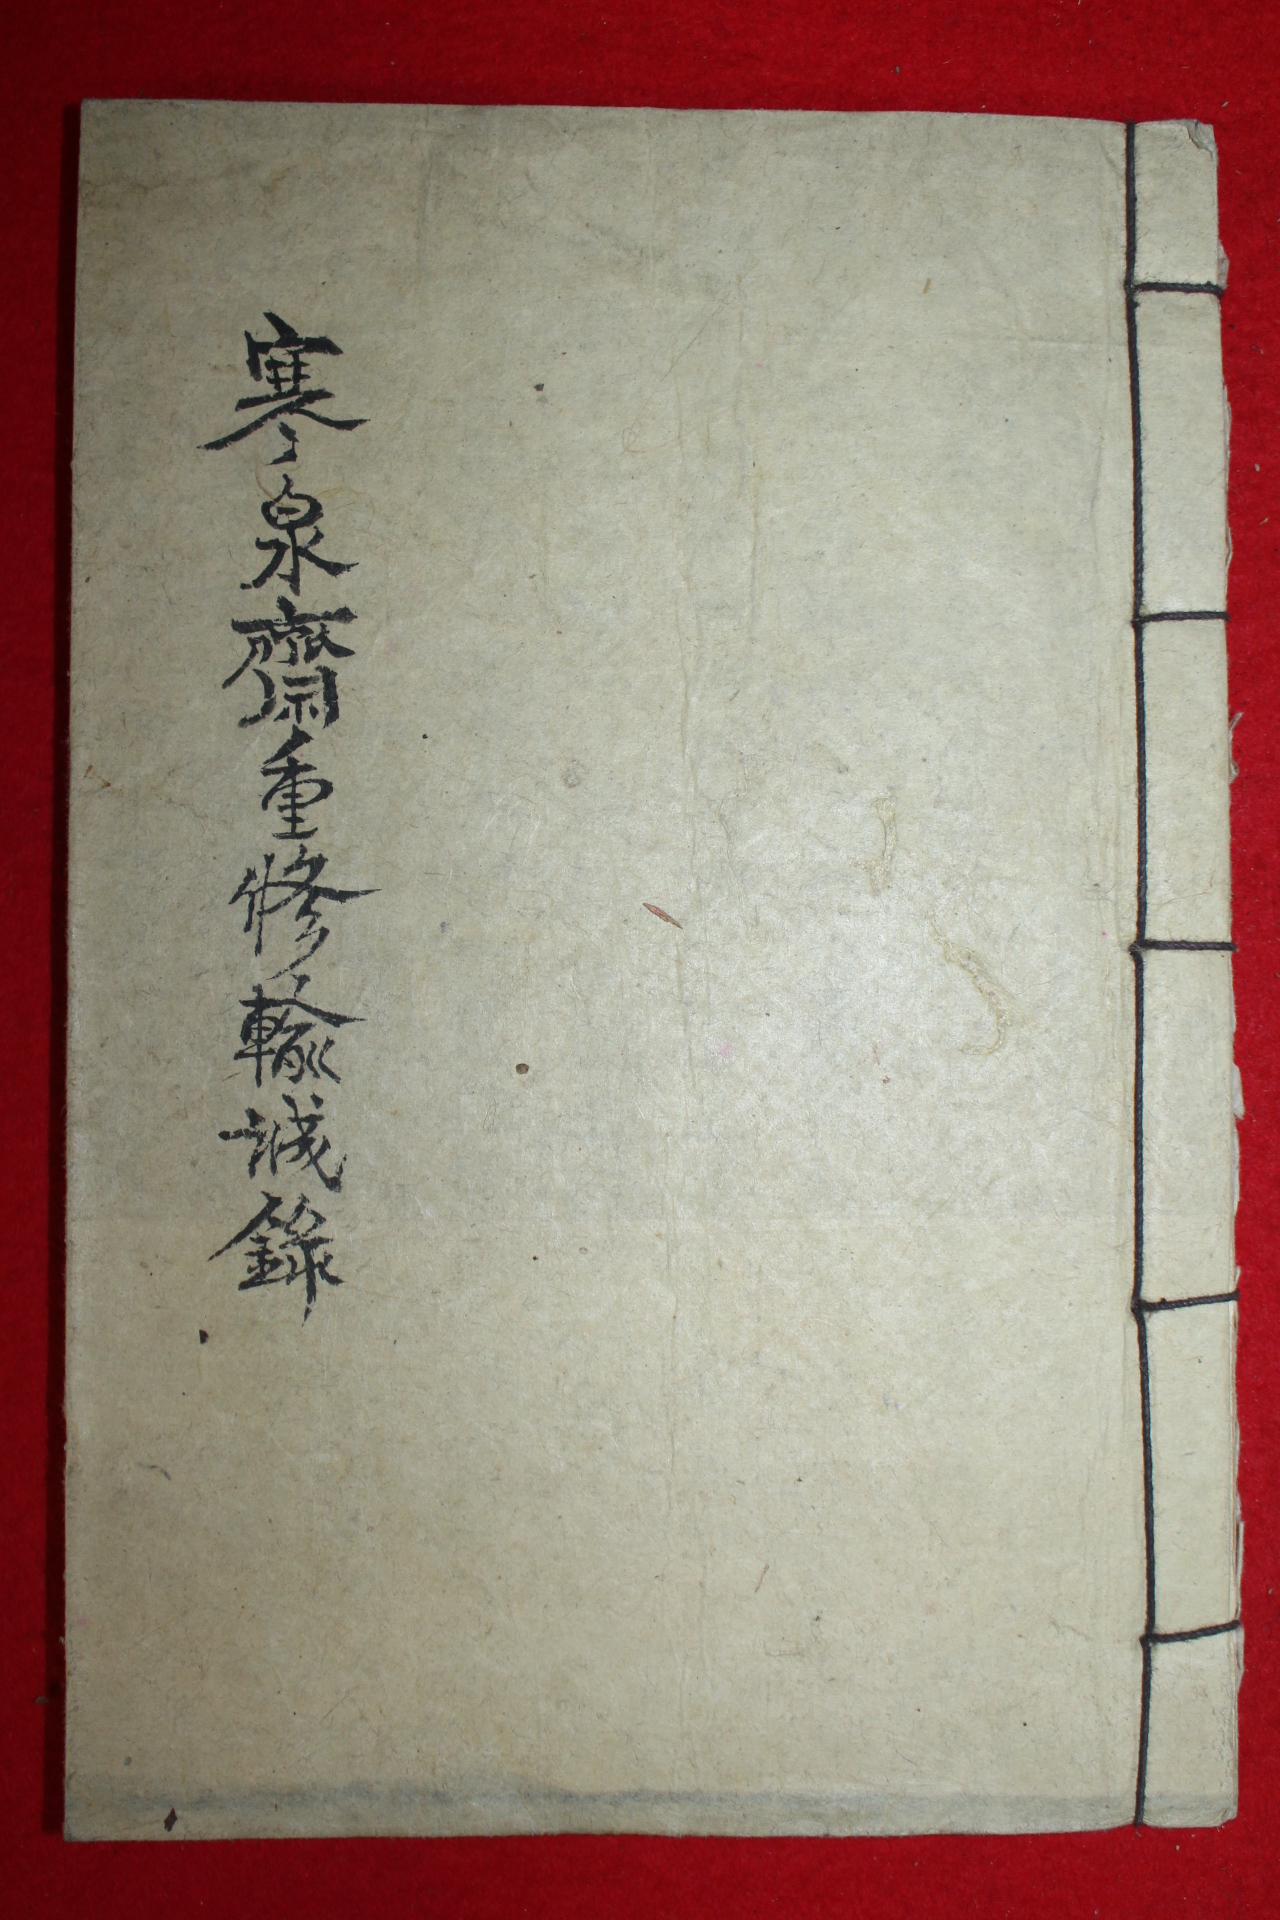 寒泉齋重修輸誠錄